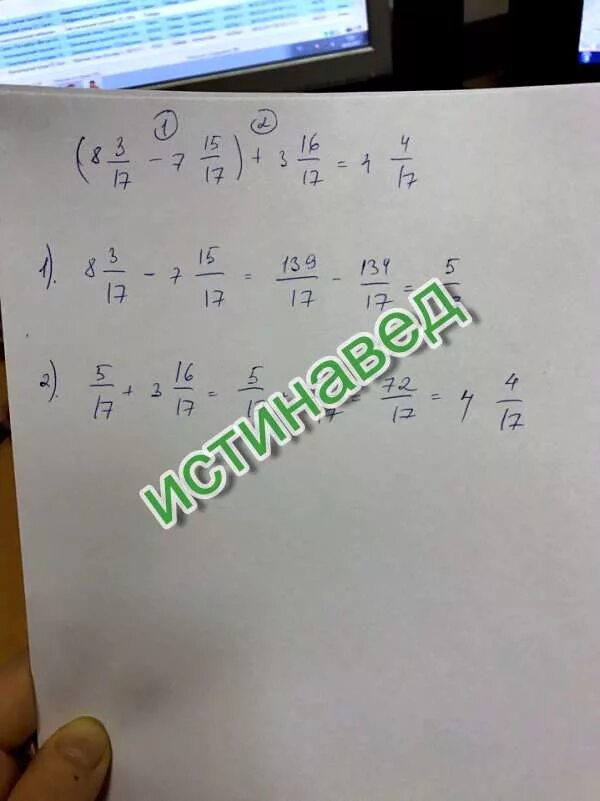 ① ②
(8 3/17 - 7 15/17) + 3 16/17 = 4 4/17
1). 8 3/17 - 7 15/17 = 139/17 - 134/17 = 5/
2). 5/17 + 3 16/17 = 5/ = 72/17 = 4 4/17
истинавед